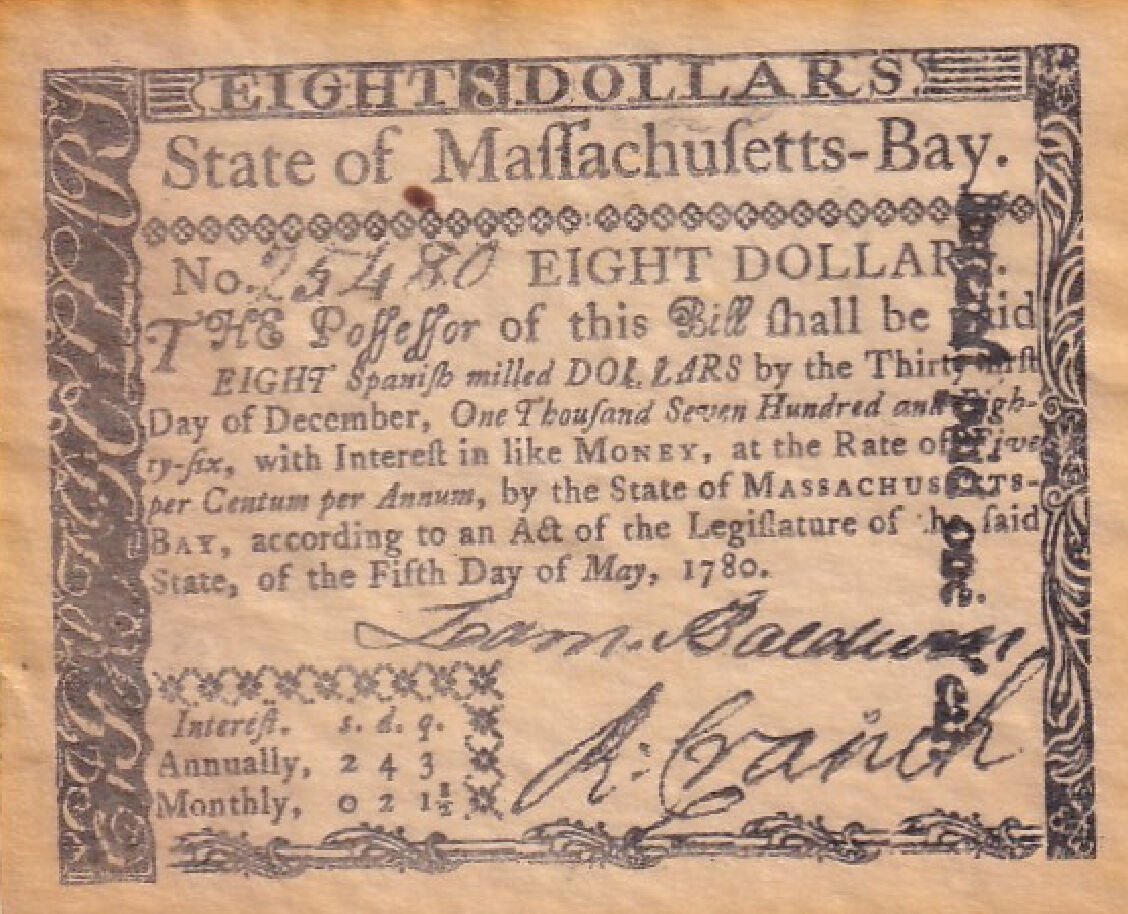 EIGHT 8 DOLLARS.
State of Maſſachuſetts-Bay.
No. 25480 EIGHT DOLLARS.
THE Poſſeſſor of this Bill ſhall be paid
EIGHT Spaniſh milled DOLLARS by the Thirty-firſt
Day of December, One Thouſand Seven Hundred and Eigh-
ty-ſix, with Intereſt in like MONEY, at the Rate of Five
per Centum per Annum, by the State of MASSACHUSETTS-
BAY, according to an Act of the Legiſlature of the ſaid
State, of the Fifth Day of May, 1780.
Loam. Baldwin
R: Cranch
Intereſt. s. d. q.
Annually, 2 4 3
Monthly, 0 2 1½
EIGHT DOLLARS
Intereſt paid one